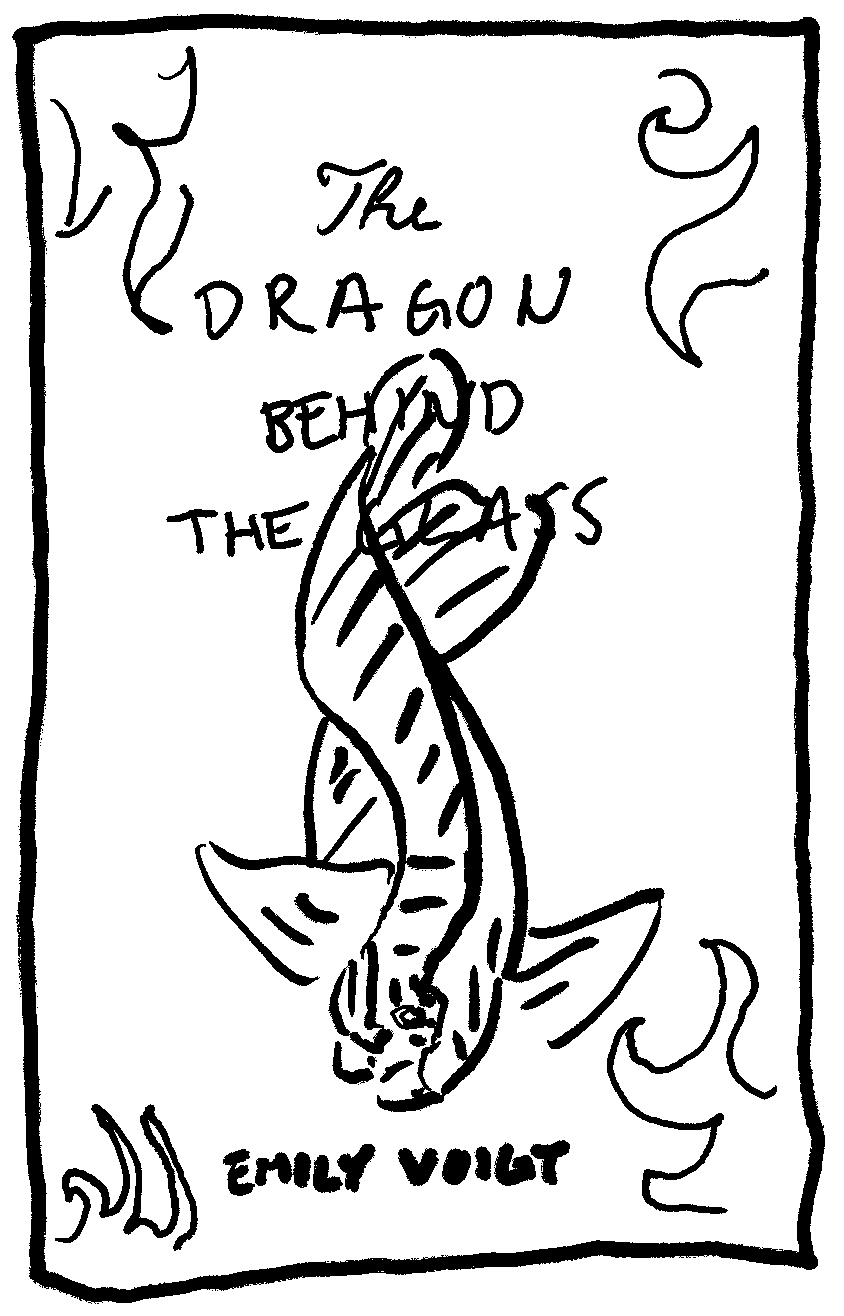 The
DRAGON
BEHIND
THE GLASS
EMILY VOIGT